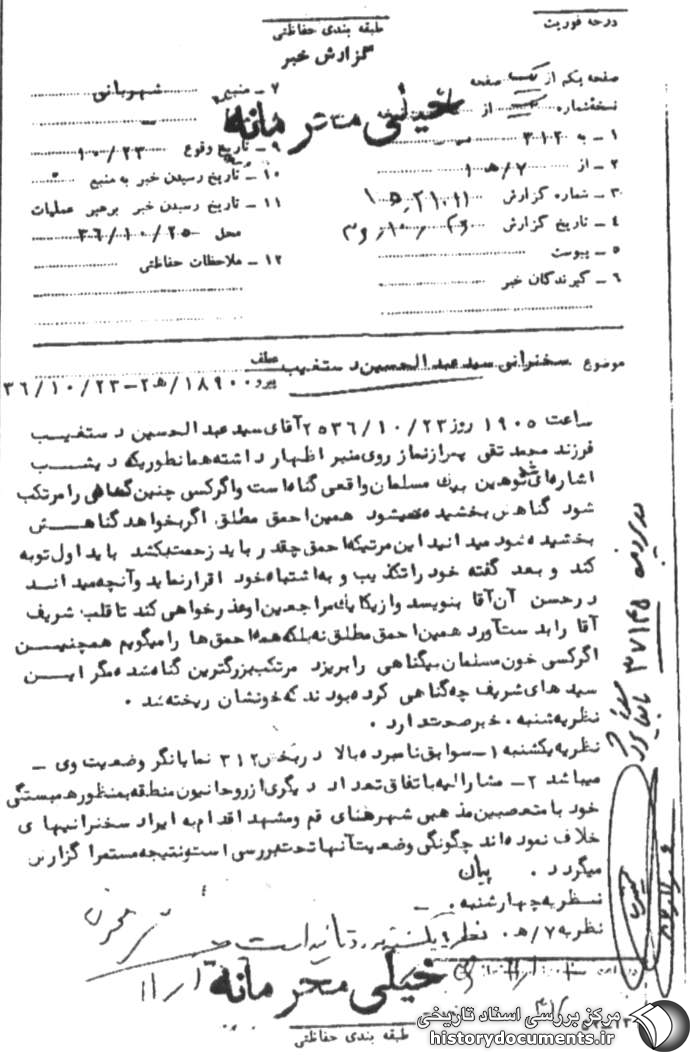 درجه فوریت
طبقه بندی حفاظتی
گزارش خبر
خیلی محرمانه
صفحه یکم از یک صفحه
نسخه شماره از
۱ ـ به ۳۱۲
۲ ـ از ۷/ ه‍ ۱
۳ ـ شماره گزارش
۴ ـ تاریخ گزارش
۵ ـ پیوست
۶ ـ گیرندگان خبر
۷ ـ منبع شهربانی
۹ ـ تاریخ وقوع ۱۰/۲۳
۱۰ ـ تاریخ رسیدن خبر به منبع
۱۱ ـ تاریخ رسیدن خبر برهبر عملیات
محل ۳۶/۱۰/۲۵
۱۲ ـ ملاحظات حفاظتی
موضوع سخنرانی سید عبدالحسین دستغیب
عطف
پیرو ۱۸۹۰۰/ ه‍ ۲ـ ۳۶/۱۰/۲۳
ساعت ۱۹۰۵ روز ۲۵۳۶/۱۰/۲۳ آقای سید عبدالحسین دستغیب
فرزند محمد تقی پس از نماز روی منبر اظهار داشته همانطوریکه دیشب
اشاره‌ای شد توهین بیک مسلمان واقعی گناه است و اگر کسی چنین گناهی را مرتکب
شود گناهش بخشیده نمیشود همین احمق مطلق اگر بخواهد گناهش
بخشیده شود میدانید این مرتیکه احمق چقدر باید زحمت بکشد باید اول توبه
کند و بعد گفته خود را تکذیب و به اشتباه خود اقرار نماید و آنچه میداند
در حسن آن آقا بنویسد و از یکایک مراجعین او عذرخواهی کند تا قلب شریف
آقا را بدست آورد همین احمق مطلق نه بلکه همه احمق ها را میگویم همچنین
اگر کسی خون مسلمان بیگناهی را بریزد مرتکب بزرگترین گناه شده مگر این
سید های شریف چه گناهی کرده بودند که خونشان ریخته شد .
نظریه شنبه . خبر صحت دارد .
نظریه یکشنبه ۱ـ سوابق نامبرده بالا در بخش ۳۱۲ نمایانگر وضعیت وی ـ
میباشد ۲ـ مشارالیه باتفاق تعداد دیگری از روحانیون منطقه بمنظور همبستگی
خود با متعصبین مذهبی شهرهای قم و مشهد اقدام به ایراد سخنرانیهای
خلاف نموده‌اند چگونگی وضعیت آنها تحت بررسی است و نتیجه مستمرا گزارش
میگردد . پیان
نظریه چهارشنبه . ـ
نظریه ۷/ ه‍ . نظریه یکشنبه مورد تائید است
خیلی محرمانه
طبقه بندی حفاظتی
مرکز بررسی اسناد تاریخی
historydocuments.ir